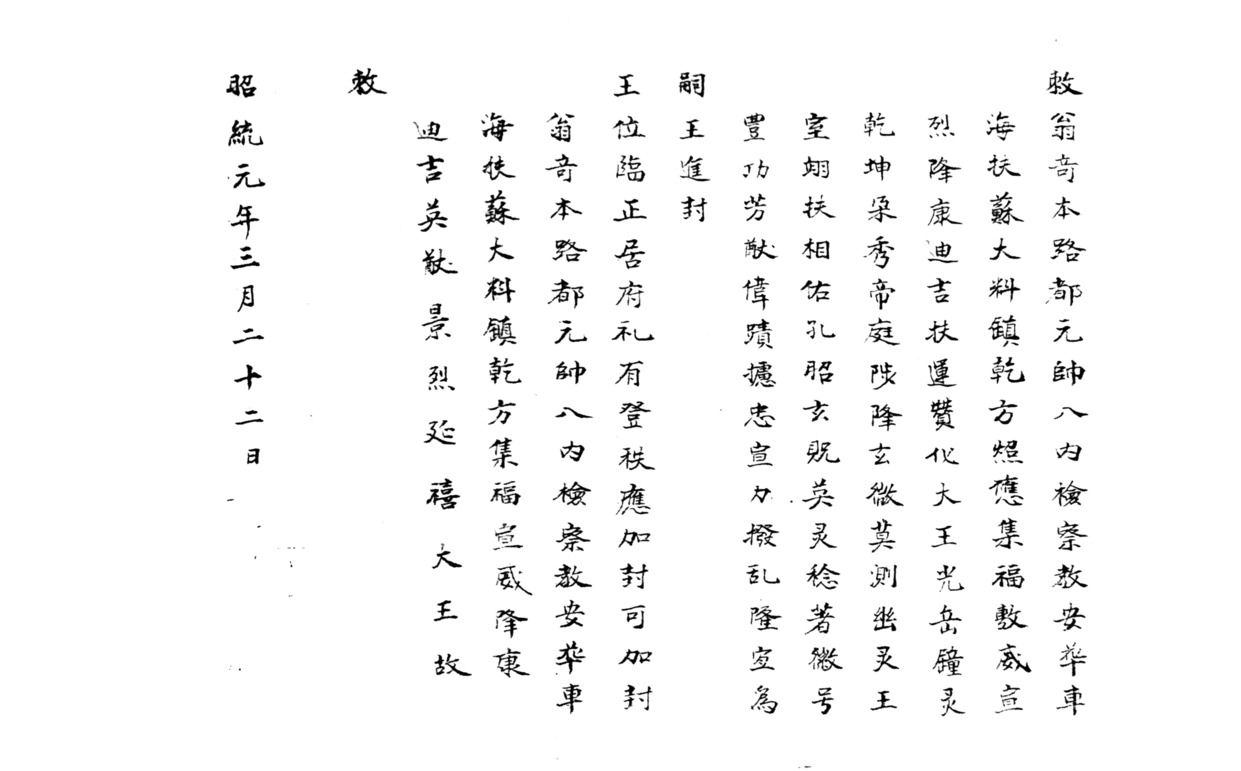 敕翁竒本路都元帥八内檢察教安華車
海扶蘇大料鎮乾方照應集福敷威宣
烈降康迪吉扶運贊化大王光岳鐘灵
乾坤朶秀帝庭陟降玄微莫測幽灵王
室翊扶相佑孔昭玄貺英灵稔著徽号
豊功芳猷偉蹟攄忠宣力撥乱隆宜為
嗣王進封
王位臨正居府礼有登秩應加封可加封
翁竒本路都元帥八内檢察教安華車
海扶蘇大料鎮乾方集福宣威降康
迪吉英猷景烈延禧大王故
敕
昭統元年三月二十二日